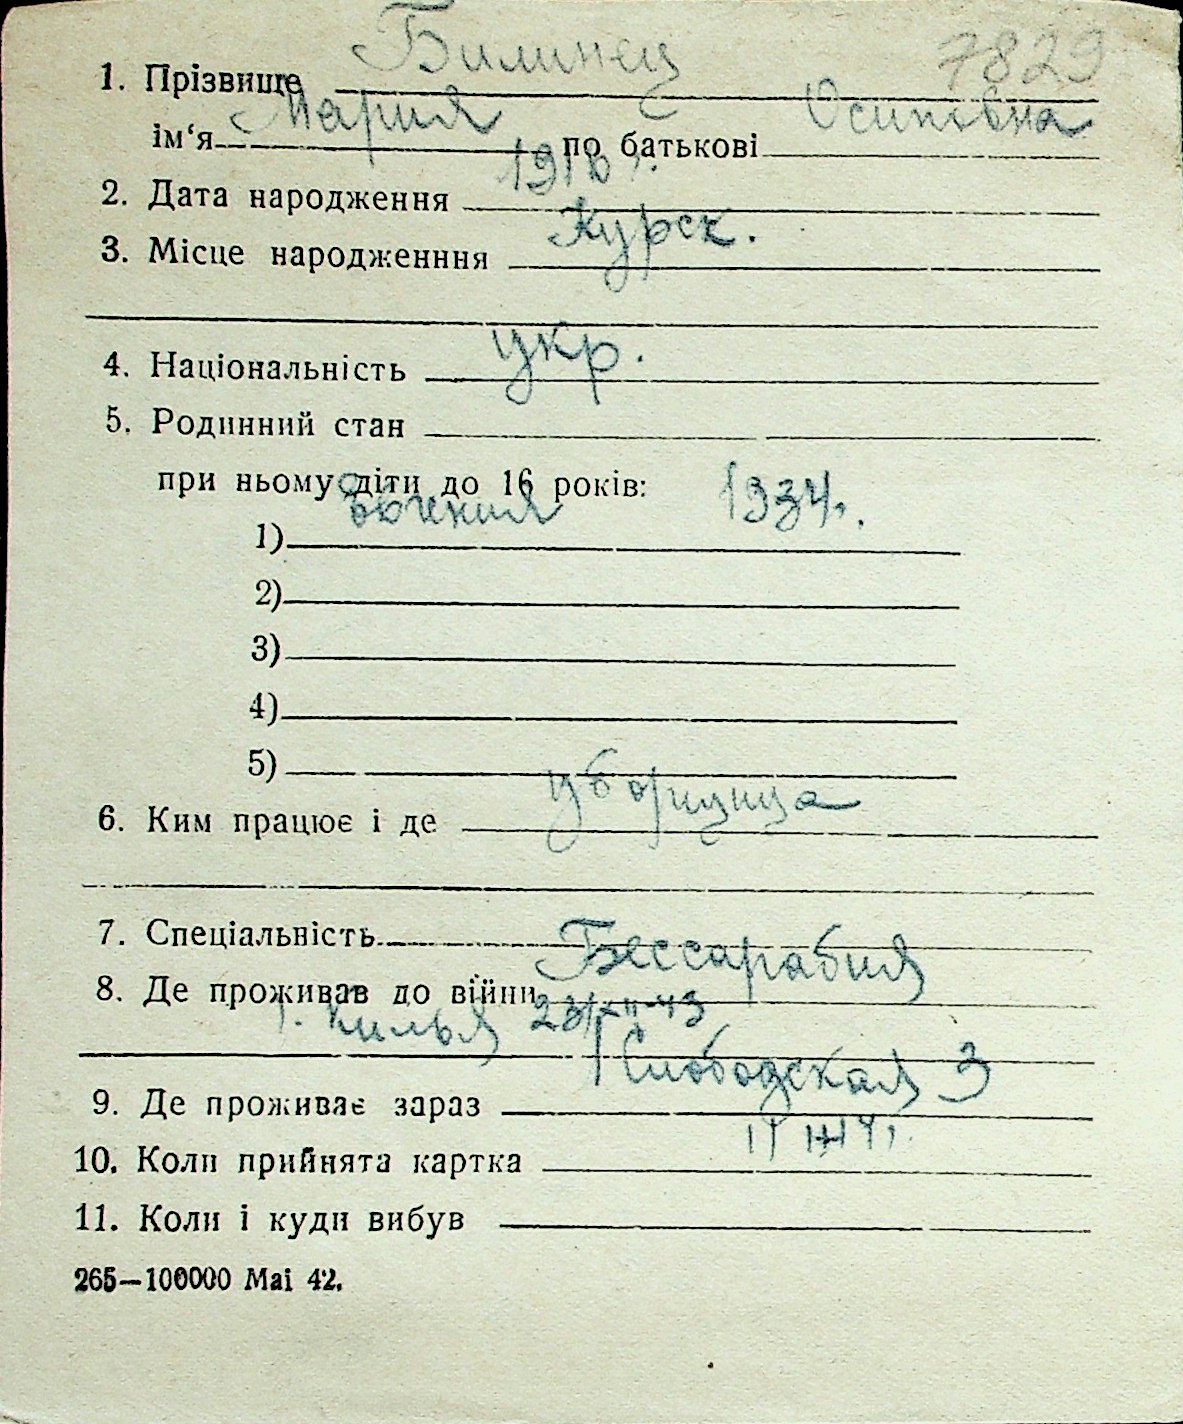 7829
1. Прізвище Билинец
ім‘я Мария по батькові Осиповна
2. Дата народження 1916 г.
3. Місце народженння Курск.
4. Національність укр.
5. Родинний стан
при ньому діти до 16 років: 1934 г.
1) Евгения
2)
3)
4)
5)
6. Ким працює і де уборщица
7. Спеціальність
8. Де проживав до війни Бессарабия
г. Килья 23/XII-43
9. Де проживає зараз Слободская 3
10. Коли прийнята картка
11. Коли і куди вибув
265—100000 Mai 42.